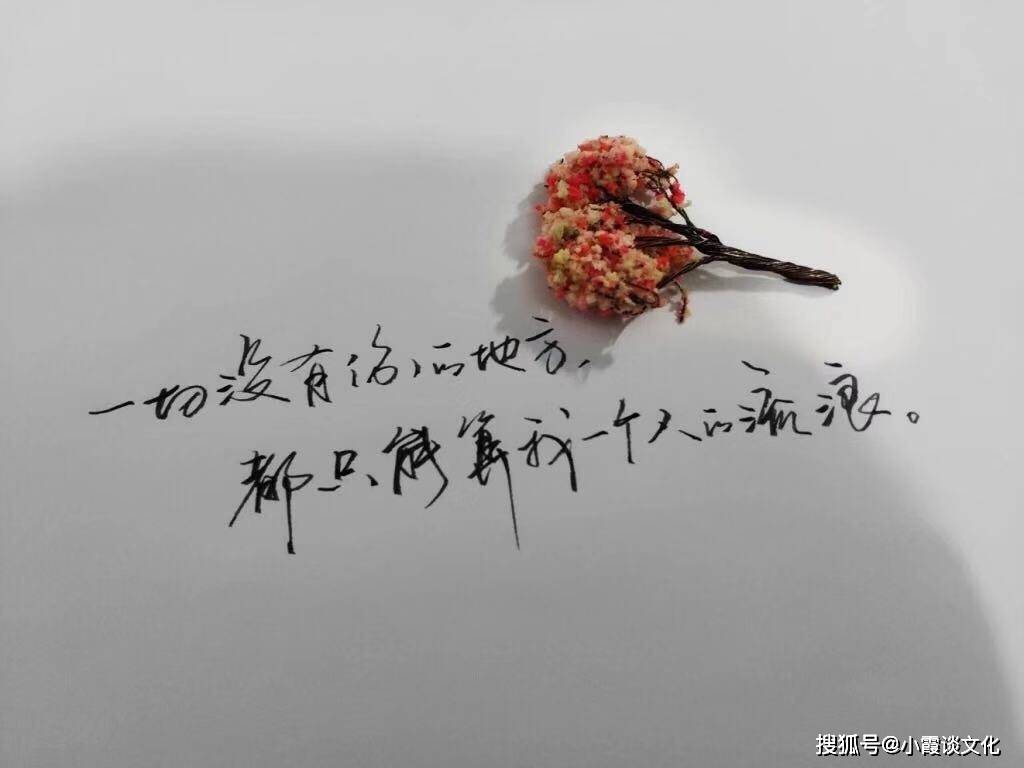 一切没有你的地方,
都只能算我一个人的流浪。
搜狐号@小霞谈文化